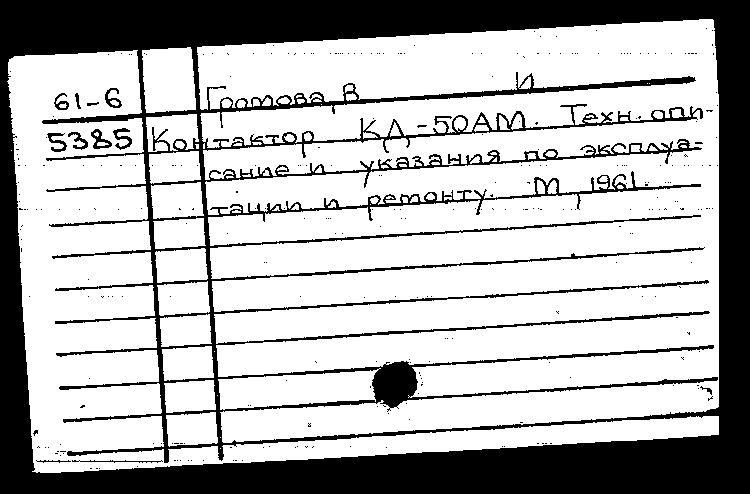 61-6 Громова, В И
5385 Контактор КД-50АМ. Техн. опи-
сание и указания по эксплуа=
тации и ремонту. М, 1961.